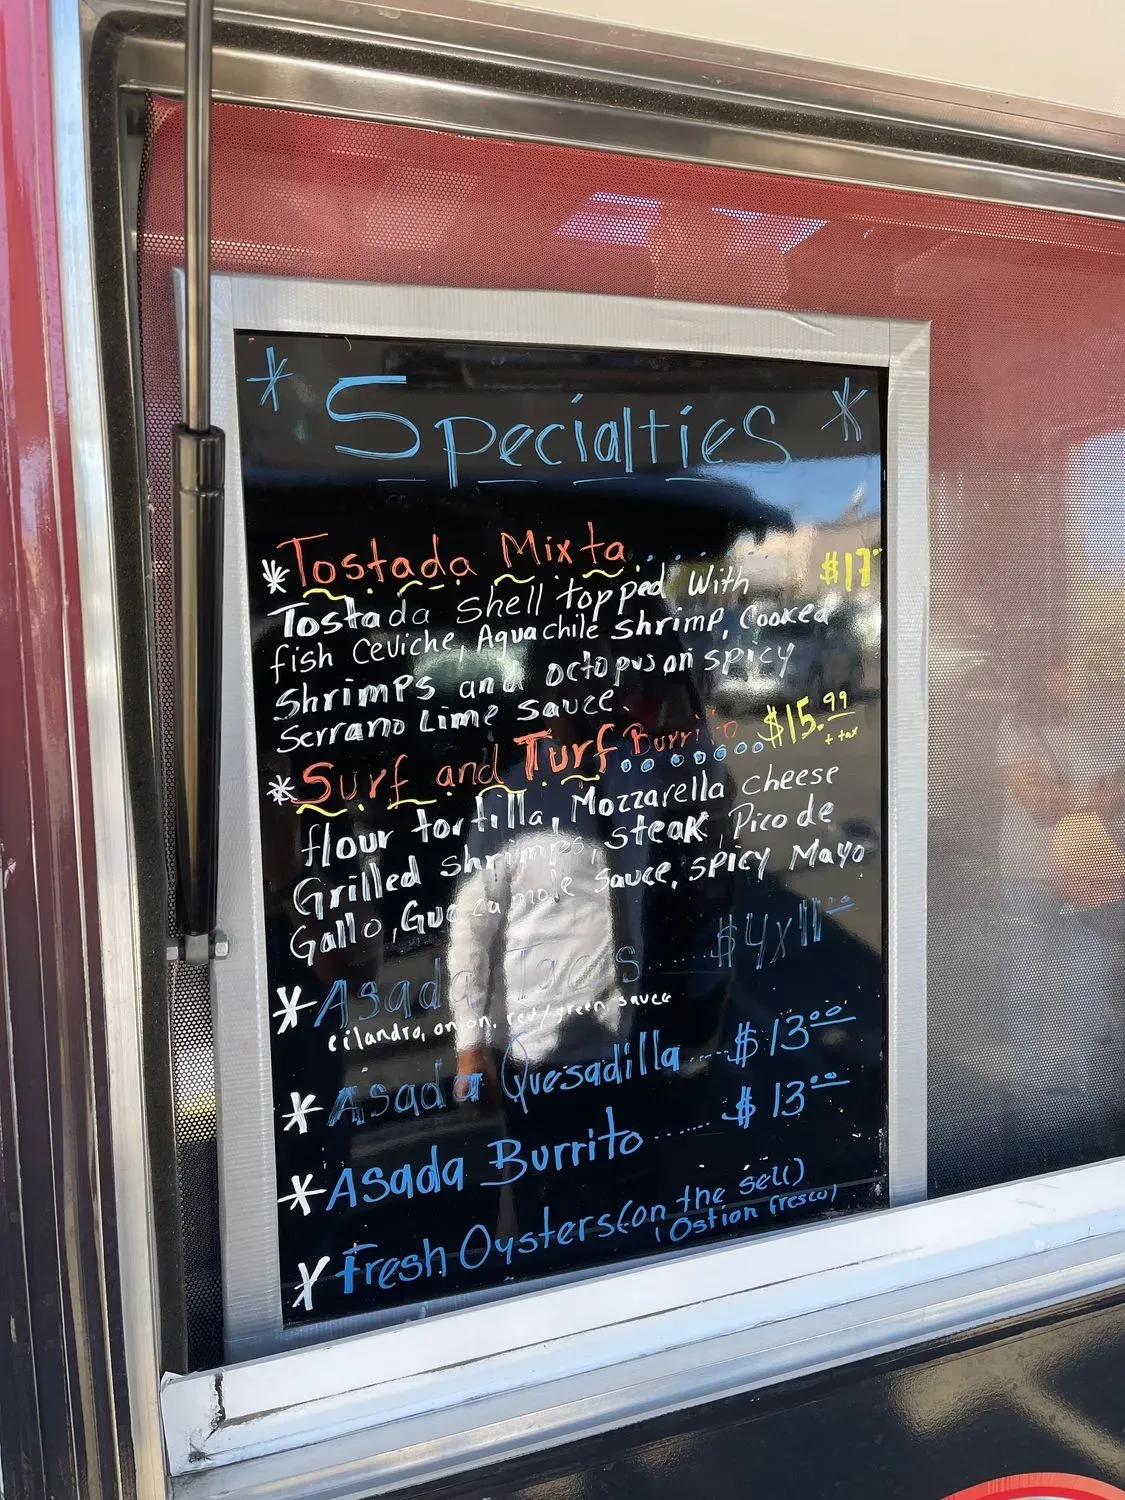 * Specialties *
* Tostada Mixta ....... $17
Tostada shell topped With
fish Ceviche, Aguachile shrimp, Cooked
shrimps and octopus on spicy
Serrano Lime sauce.
* Surf and Turf Burrito $15.99
+ tax
flour tortilla, Mozzarella cheese
Grilled shrimps, steak, Pico de
Gallo, Guacamole sauce, spicy Mayo
* Asada Tacos ..... $4x11.00
cilandro, onion, red/green sauce
* Asada Quesadilla ..... $13.00
* Asada Burrito ....... $13.00
* Fresh Oysters (on the sell)
(Ostion fresco)